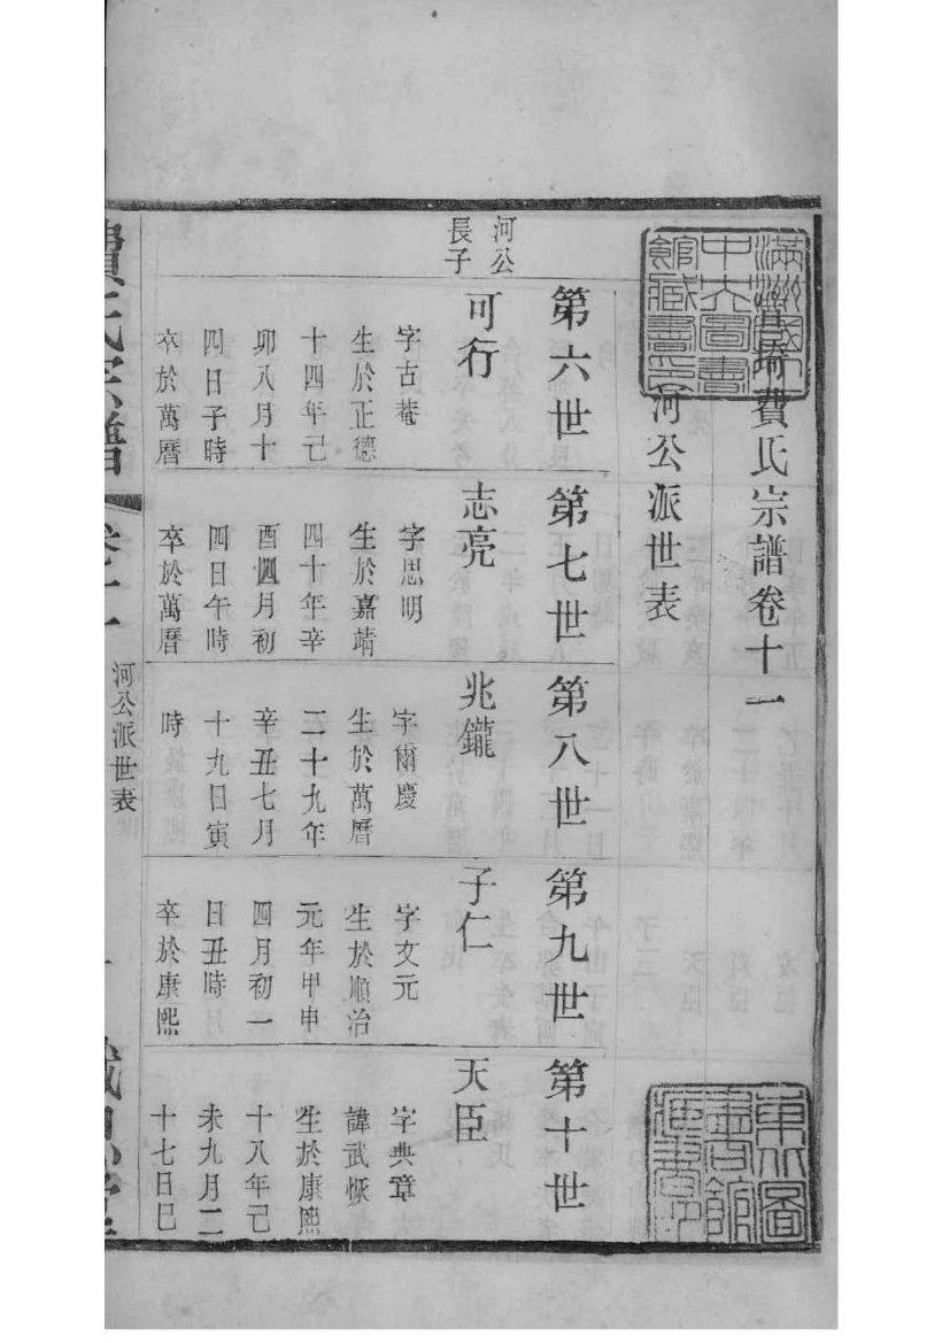 琦費氏宗譜卷十一
河公派世表
第六世
河公
長子
可行
字古菴
生於正德
十四年己
卯八月十
四日子時
卒於萬曆
第七世
志亮
字思明
生於嘉靖
四十年辛
酉四月初
四日午時
卒於萬曆
第八世
兆鑨
字爾慶
生於萬曆
二十九年
辛丑七月
十九日寅
時
第九世
子仁
字文元
生於順治
元年甲申
四月初一
日丑時
卒於康熙
第十世
天臣
字典章
諱武恢
生於康熙
十八年己
未九月二
十七日巳
費氏宗譜
卷十一
河公派世表
一